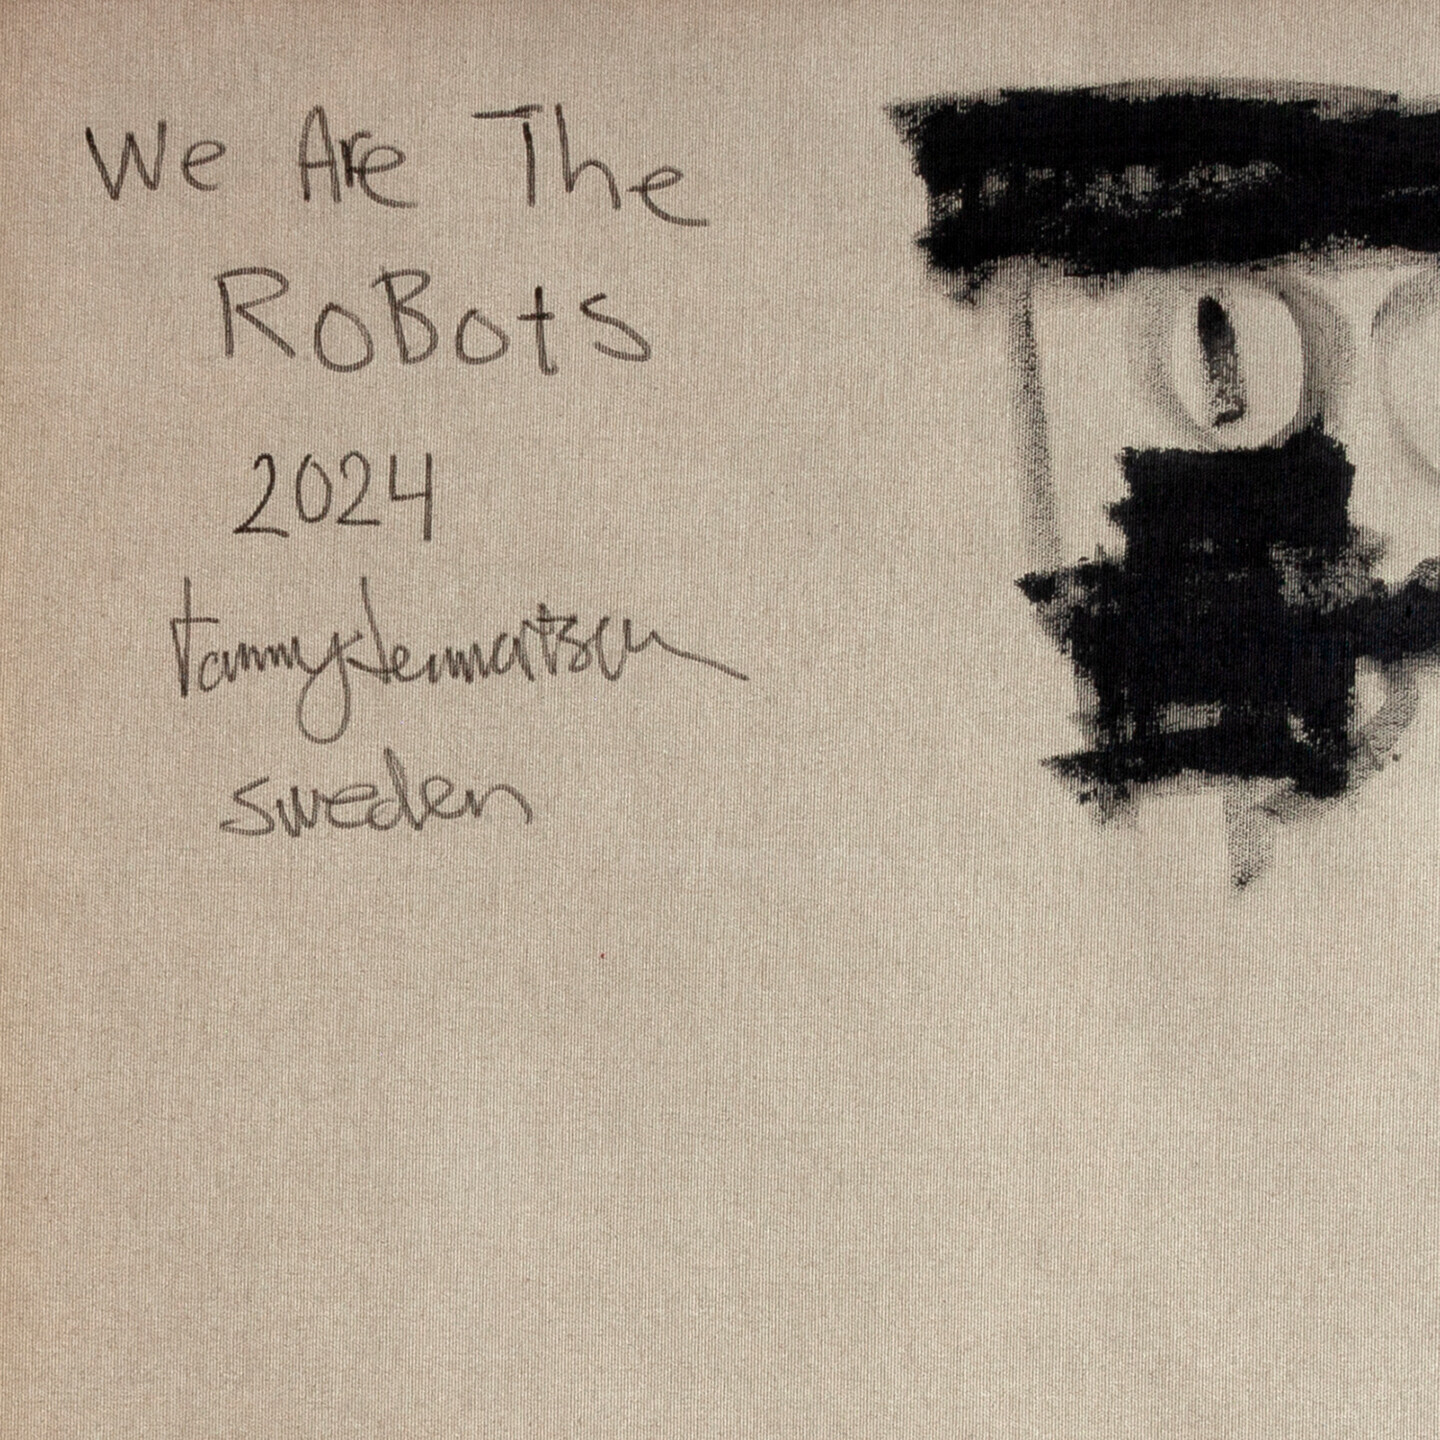 We Are The
RoBots
2024
sweden